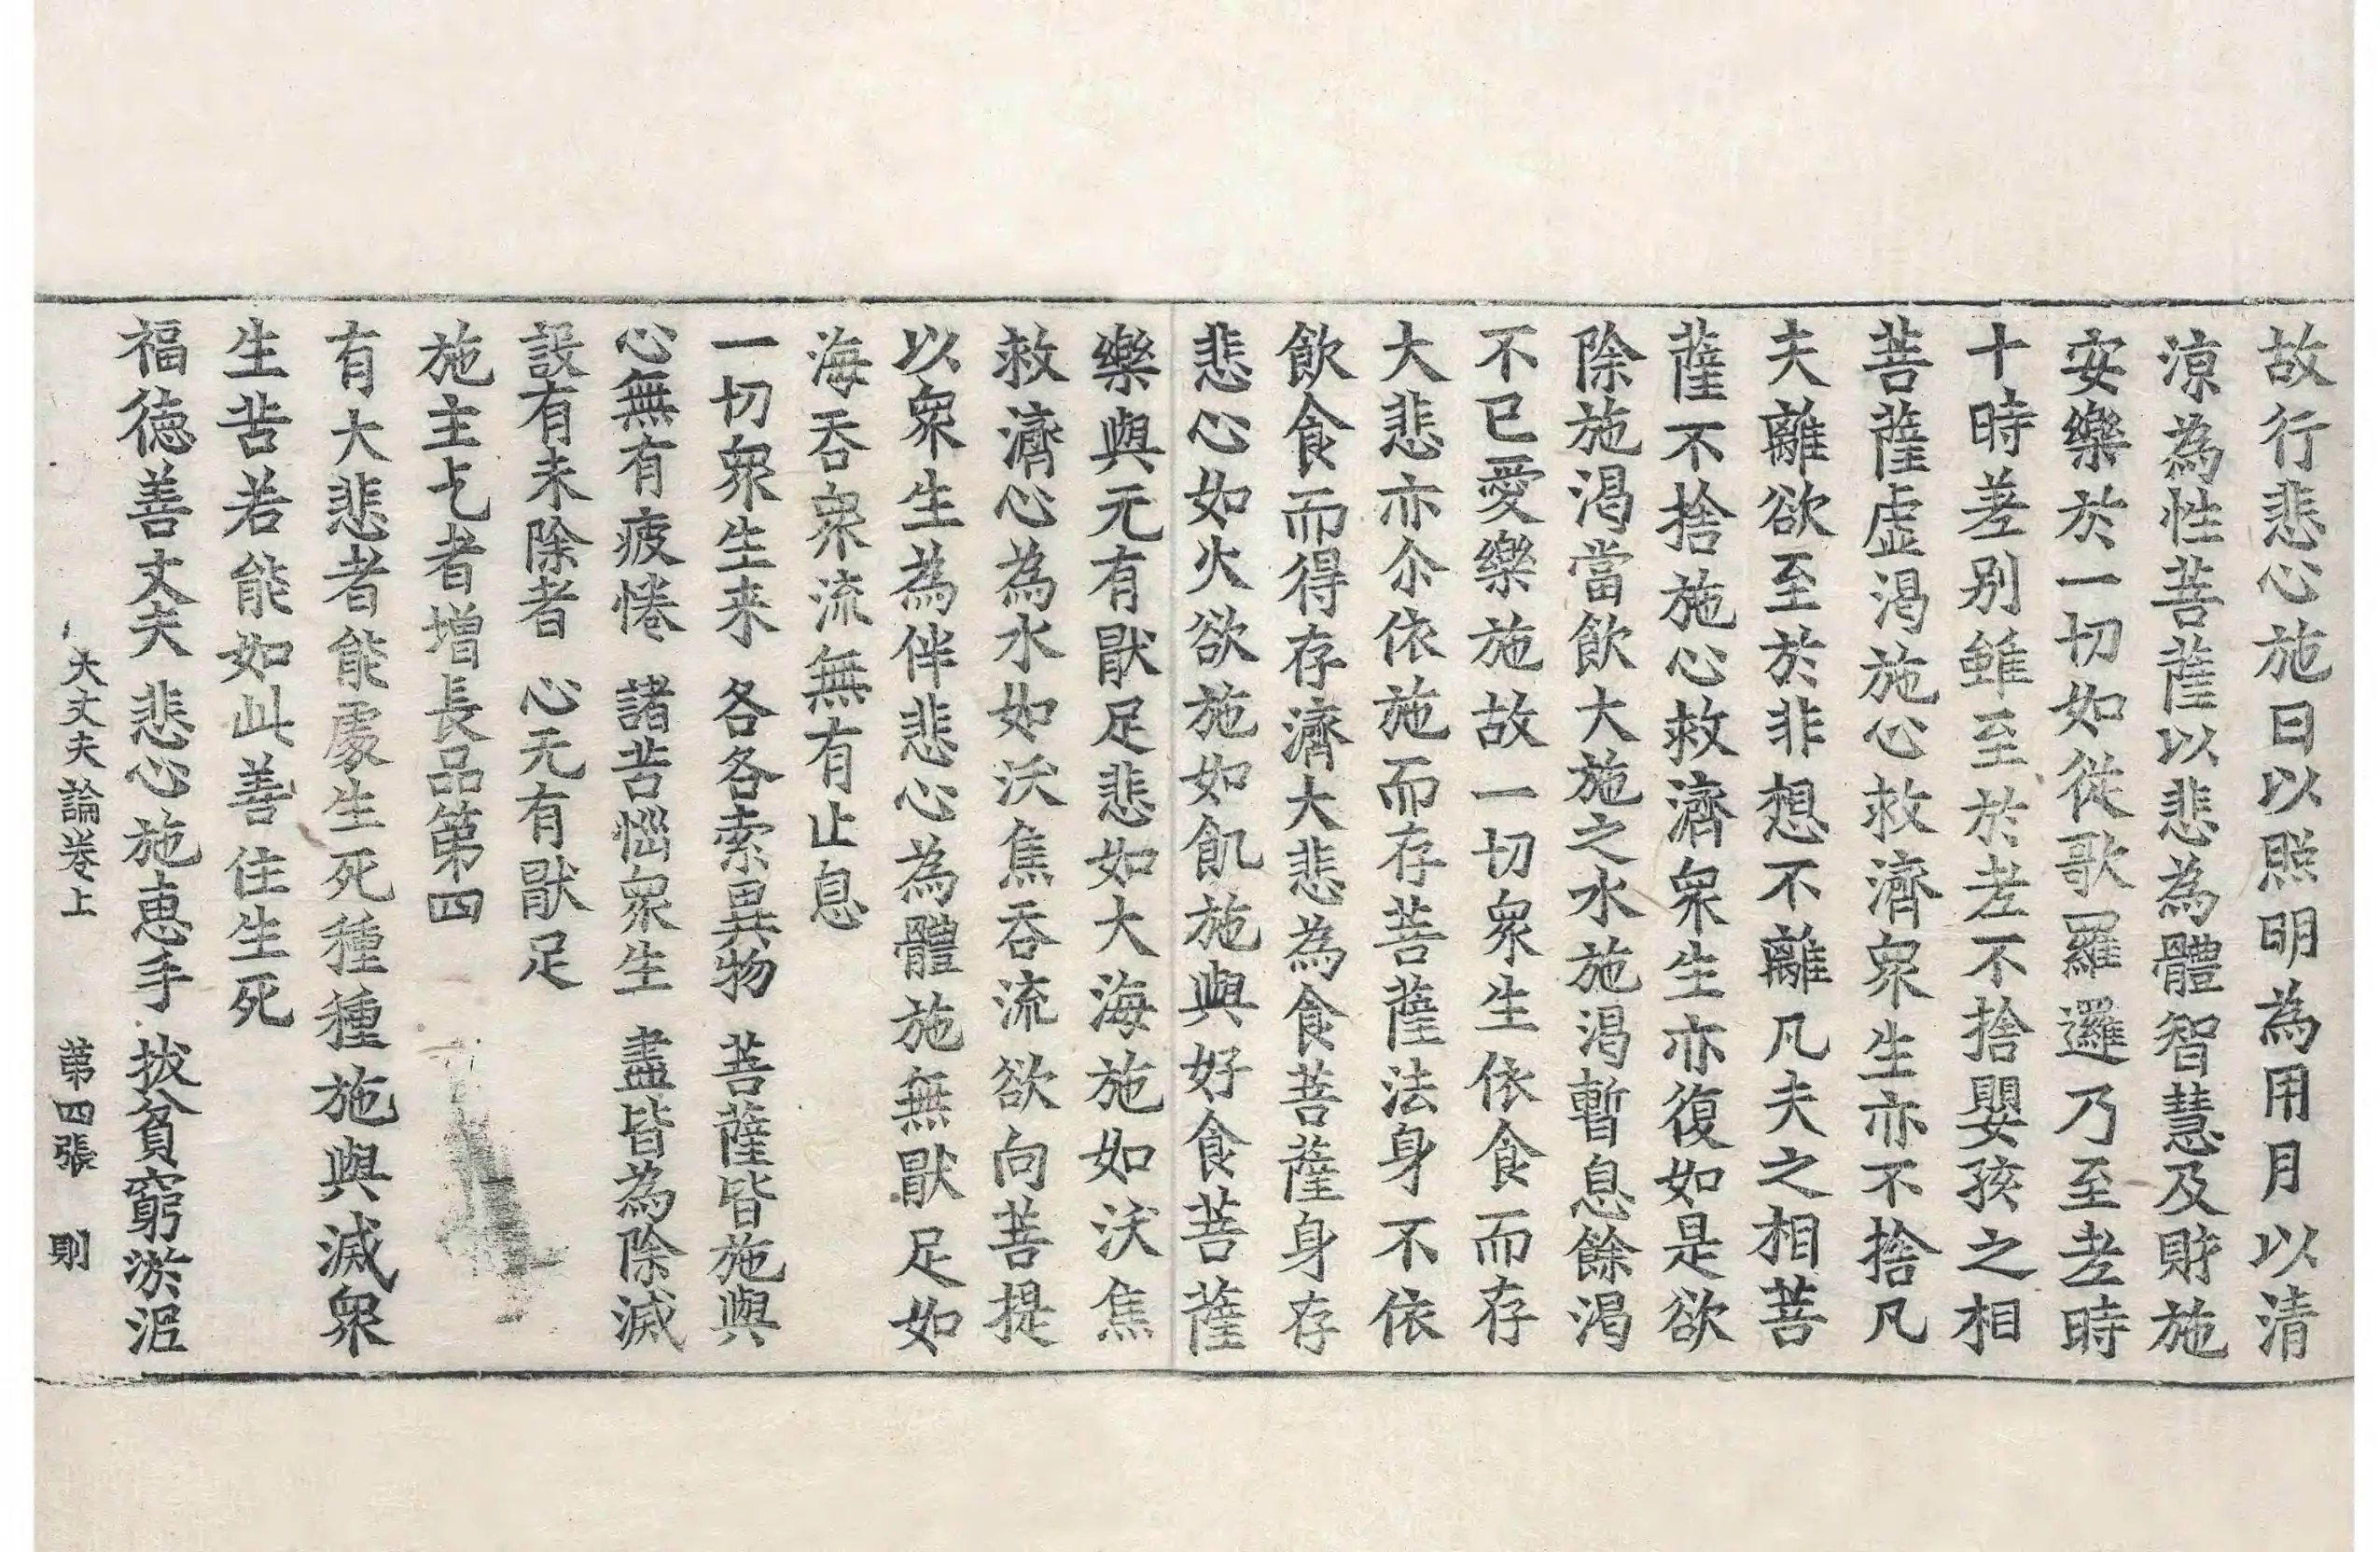 故行悲心施日以照明為用月以清
涼為性菩薩以悲為體智慧及財施
安樂於一切如從歌羅邏乃至老時
十時差別雖至於老不捨嬰孩之相
菩薩虛渴施心救濟衆生亦不捨凡
夫離欲至於非想不離凡夫之相菩
薩不捨施心救濟衆生亦復如是欲
除施渴當飲大施之水施渴暫息餘渴
不已愛樂施故一切衆生依食而存
大悲亦尒依施而存菩薩法身不依
飲食而得存濟大悲為食菩薩身存
悲心如火欲施如飢施與好食菩薩
樂與无有猒足悲如大海施如沃焦
救濟心為水如沃焦吞流欲向菩提
以衆生為伴悲心為體施無猒足如
海吞衆流無有止息
一切衆生来 各各索異物 菩薩皆施與
心無有疲惓 諸苦惱衆生 盡皆為除滅
設有未除者 心无有猒足
施主乞者增長品第四
有大悲者能處生死種種施與滅衆
生苦若能如此善住生死
福德善丈夫 悲心施惠手 拔貧窮淤泥
大丈夫論卷上 第四張 則